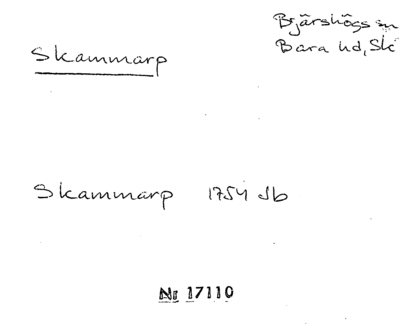 Bjärshögs sn
Skammarp
Bara hd, Sk
Skammarp 1754 Jb
Nr 17110